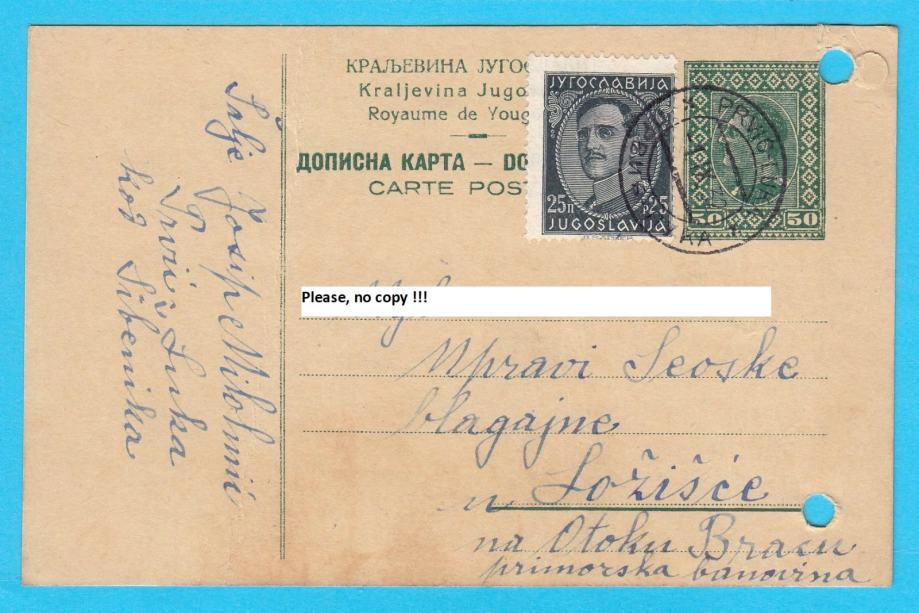 КРАЉЕВИНА ЈУГОС
Kraljevina Jugo
Royaume de Youg
ДОПИСНА КАРТА — DO
CARTE POST
ЈУГОСЛАВИЈА
25 П Р 25
JUGOSLAVIJA
50 50
PRVIĆ LUKA
Please, no copy !!!
Upravi Seoske
blagajne
u Ložišće
na Otoku Braču
primorska banovina
Šalje Josip
Prvić Luka
kod Šibenika